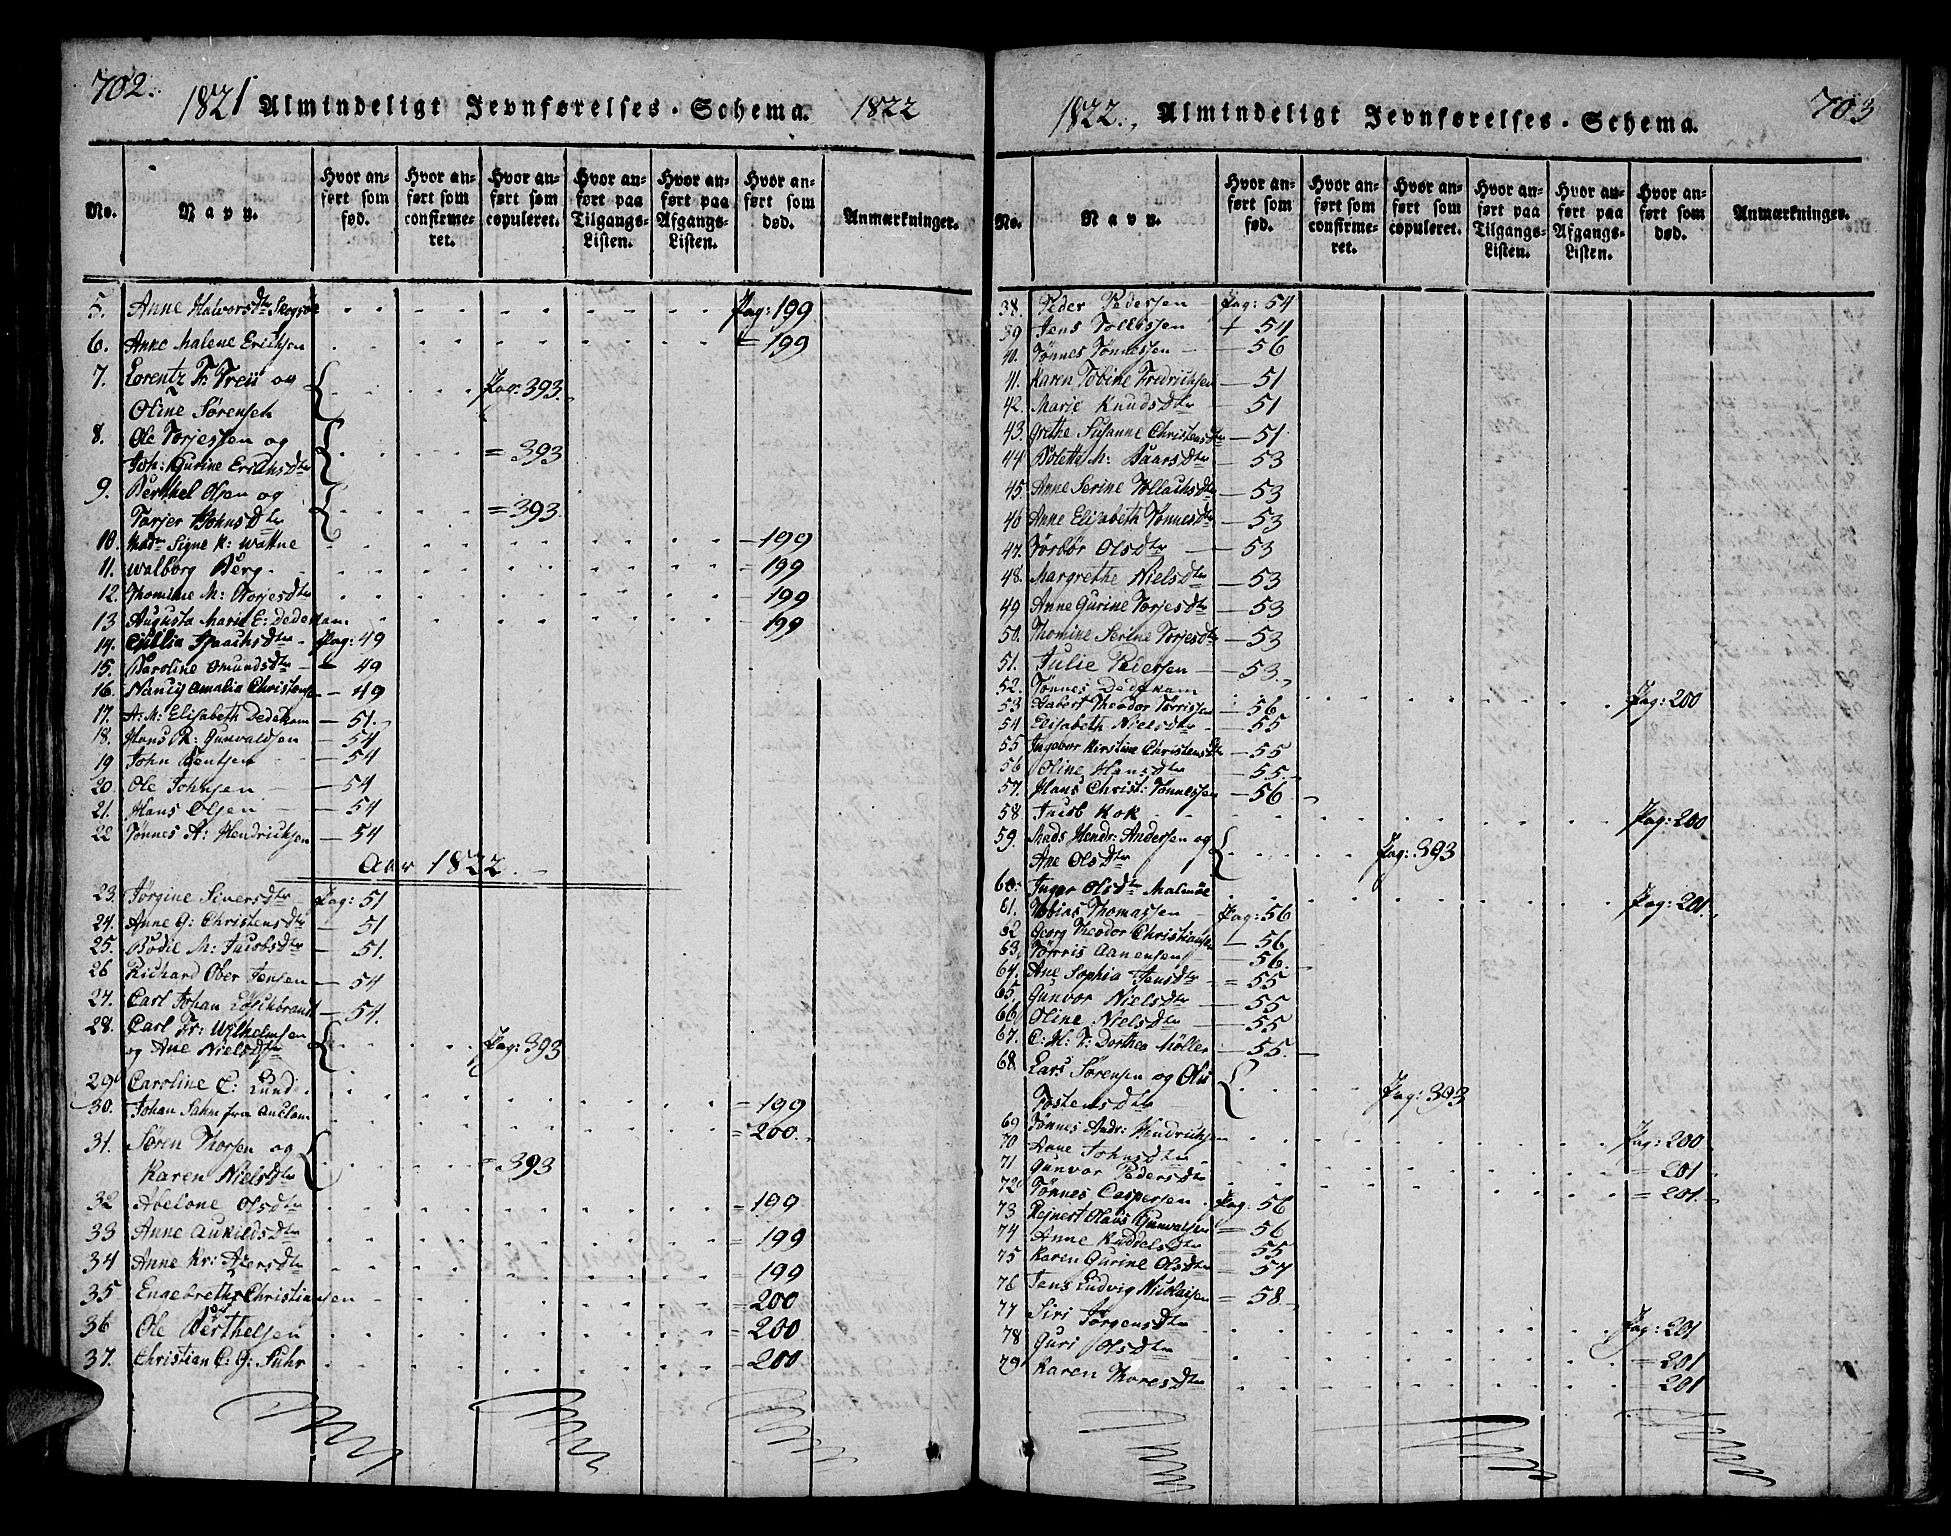 702.
1821 Almindeligt Jevnførelses-Schema. 1822
No. Navn. Hvor anført som fød. Hvor anført som confirmeret. Hvor anført som copuleret. Hvor anført paa Tilgangs-Listen. Hvor anført paa Afgangs-Listen. Hvor anført som død. Anmærkninger.
5. Anne Halvorsdtr Pag: 199
6. Anne Malene Erichsen = 199
7. Lorentz Fr: Treü og
Oline Sørensen Pag: 393.
8. Ole Torjessen og
Joh: Gurine Erichsdtr = 393
9. Berthel Olsen og
Torjer Johnsdtr = 393.
10. Madm Signe K: Wattne — 199
11. Walborg Berg = 199
12. Thomine M: Torjesdtr = 199
13 Augusta Marie E: Dedekam = 199
14. Isaachsdtr Pag: 49
15. Omundsdtr — 49
16. Nancy Amalia Christense — 49
17. A: M: Elisabeth Dedekam — 51.
18. Hans R: Gunvaldsen — 54
19 John Bentsen — 54
20. Ole Johnsen — 54
21. Hans Olsen — 54
22 Tønnes A: Hendrichsen — 54
Aar 1822.
23. Jørgine Siversdtr Pag: 51
24. Anne G: Christensdtr — 51
25. Bodie M: Jacobsdtr — 51.
26 Richard Ober Jensen — 54
27. Carl Johan — 54.
28. Carl Fr: Wilhelmsen
og Ane Nielsdtr Pag: 393
29 Caroline C: Lund = 199
30. Johan Sahm fra Anclam = 200.
31. Søren Thorsen og
Karen Nielsdtr = 393
32 Abelone Olsdtr = 199
33 Anne Aukildsdtr = 199
34 Anne Kr: = 199
35 Engebreth Christiansen = 200
36 Ole Berthelsen = 200
37. Christian C: G: Suhr = 200
1822. Almindeligt Jevnførelses-Schema. 703
No. Navn. Hvor anført som fød. Hvor anført som confirmeret. Hvor anført som copuleret. Hvor anført paa Tilgangs-Listen. Hvor anført paa Afgangs-Listen. Hvor anført som død. Anmærkninger.
38. Peder Pedersen Pag: 54
39 Jens Tollefsen + 54
40. Tønnes Tønnessen — 56
41. Karen Tobine Fredrichsen — 51
42. Marie Knudsdtr — 51
43. Grethe Susanne Christensdtr — 51
44 Bolette M: Baarsdtr — 53
45. Anne Serine Tollachsdtr — 53
46 Anne Elisabeth Tønnesdtr — 53
47. Torbør Olsdtr — 53
48. Margrethe Nielsdtr — 53
49 Anne Gurine Torjesdtr — 53
50. Thomine Serine Torjesdtr — 53
51. Julie Pedersen — 53.
52. Tønnes Dedekam Pag: 200
53 Gabert Theodor Torrissen — 56
54 Elisabeth Nielsdtr — 55
55 Ingebor Kirstine Christensdtr — 55
56 Oline Hansdtr — 55.
57. Hans Christ: Tønnessen — 56.
58 Jacob Kok Pag: 200
59. Mads Hendr: Andersen og
Ane Olsdtr Pag: 393
60. Inger Olsdtr Malmöe Pag: 201.
61. Tobias Thomassen Pag: 56
62 Georg Theodor Christiansen — 56
63 Tørris Aanensen — 56.
64. Ane Sophia Jensdtr = 55
65. Gunvor Nielsdtr — 55
66 Oline Nielsdtr — 55
67. C: H: F: Dorthea Møller — 55.
68. Lars Sørensen og
Tostensdtr Pag: 393
69 Tønnes Andr: Hendrichsen Pag: 200
70 Anne Johnsdtr = 201
71 Gunvor Pedersdtr = 201.
72 Tønnes Caspersen Pag: 56
73 Rejnert Olaus Gunvaldsen = 56
74 Anne = 55
75 Karen Gurine Olsdtr = 57
76 Jens Ludvig Nicolaisen = 58.
77 Siri Jørgensdtr Pag: 201
78 Guri Olsdtr = 201
79 Karen Thoresdtr 201